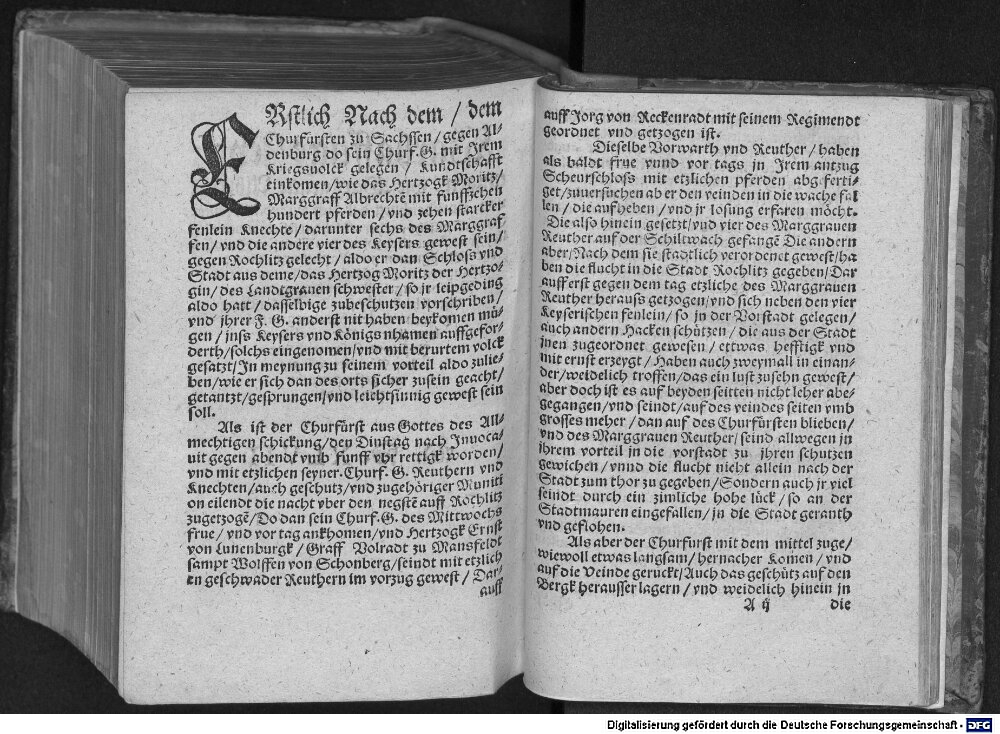 ERstlich Nach dem / dem
Churfürsten zu Sachssen / gegen Al-
denburg do sein Churf. G. mit Irem
Kriegsuolck gelegen / Kundtschafft
einkomen / wie das Hertzogk Moritz /
Marggraff Albrechte mit funffzehen
hundert pferden / vnd zehen starcker
fenlein Knechte / darunter sechs des Marggraf
fen / vnd die andere vier des Keysers gewest sein /
gegen Rochlitz gelecht / aldo er dan Schloss vnd
Stadt aus deme / das Hertzog Moritz der Hertzo-
gin / des Landtgrauen schwester / so jr leipgeding
aldo hatt / dasselbige zubeschutzen vorschriben /
vnd jhrer F. G. anderst nit haben beykomen mü-
gen / jnss Keysers vnd Königs nhamen auffgefor-
derth / solchs eingenomen / vnd mit berurtem volck
gesatzt / In meynung zu seinem vorteil aldo zulie-
ben / wie er sich dan des orts sicher zusein geacht /
getantzt / gesprungen / vnd leichtsinnig gewest sein
soll.
Als ist der Churfürst aus Gottes des All-
mechtigen schickung / den Dinstag nach Inuoca-
uit gegen abendt vmb funff vhr rettigk worden /
vnd mit etzlichen seyner. Churf. G. Reuthern vnd
Knechten / auch geschutz / vnd zugehöriger Muniti
on eilendt die nacht vber den negstē auff Rochlitz
zugetzogē / Do dan sein Churf. G. des Mittwochs
frue / vnd vor tag ankhomen / vnd Hertzogk Ernst
von Lunenburgk / Graff Volradt zu Mansfeldt
sampt Wolffen von Schonberg / seindt mit etzlich
en geschwader Reuthern im vorzug gewest / Dar-
auff
auff Jorg von Reckenradt mit seinem Regimendt
geordnet vnd getzogen ist.
Dieselbe Vorwarth vnd Reuther / haben
als baldt frue vnnd vor tags in Irem antzug
Scheurschloss mit etzlichen pferden abgeferti-
get / zuuersuchen ab er den veinden in die wache fal
len / die auffheben / vnd jr losung erfaren möcht.
Die also hinein gesetzt / vnd vier des Marggrauen
Reuther auff der Schiltwach gefangē Die andern
aber / Nach dem sie stadtlich verordenet gewest / ha
ben die flucht in die Stadt Rochlitz gegeben / Dar
auff erst gegen dem tag etzliche des Marggrauen
Reuther herauss getzogen / vnd sich neben den vier
Keyserischen fenlein / so in der Vorstadt gelegen /
auch andern Hacken schützen / die aus der Stadt
jnen zugeordnet gewesen / ettwas hefftigk vnd
mit ernst erzeygt / Haben auch zweymall in einan-
der / weidelich troffen / das ein lust zusehn gewest /
aber doch ist es auf beyden seitten nicht leher abe-
gegangen / vnd seindt / auf des veindes seiten vmb
grosses meher / dan auf des Churfürsten blieben /
vnd des Marggrauen Reuther / seind allwegen in
jhrem vorteil in die vorstadt zu jhren schutzen
gewichen / vnnd die flucht nicht allein nach der
Stadt zum thor zu gegeben / Sondern auch jr viel
seindt durch ein zimliche hohe lück / so an der
Stadtmauren eingefallen / jn die Stadt geranth
vnd geflohen.
Als aber der Churfurst mit dem mittel zuge /
wiewoll etwas langsam / hernacher Komen / vnd
auf die Veinde geruckt / Auch das geschütz auf den
Bergk herausser lagern / vnd weidelich hinein jn
A ij die
Digitalisierung gefördert durch die Deutsche Forschungsgemeinschaft - DFG